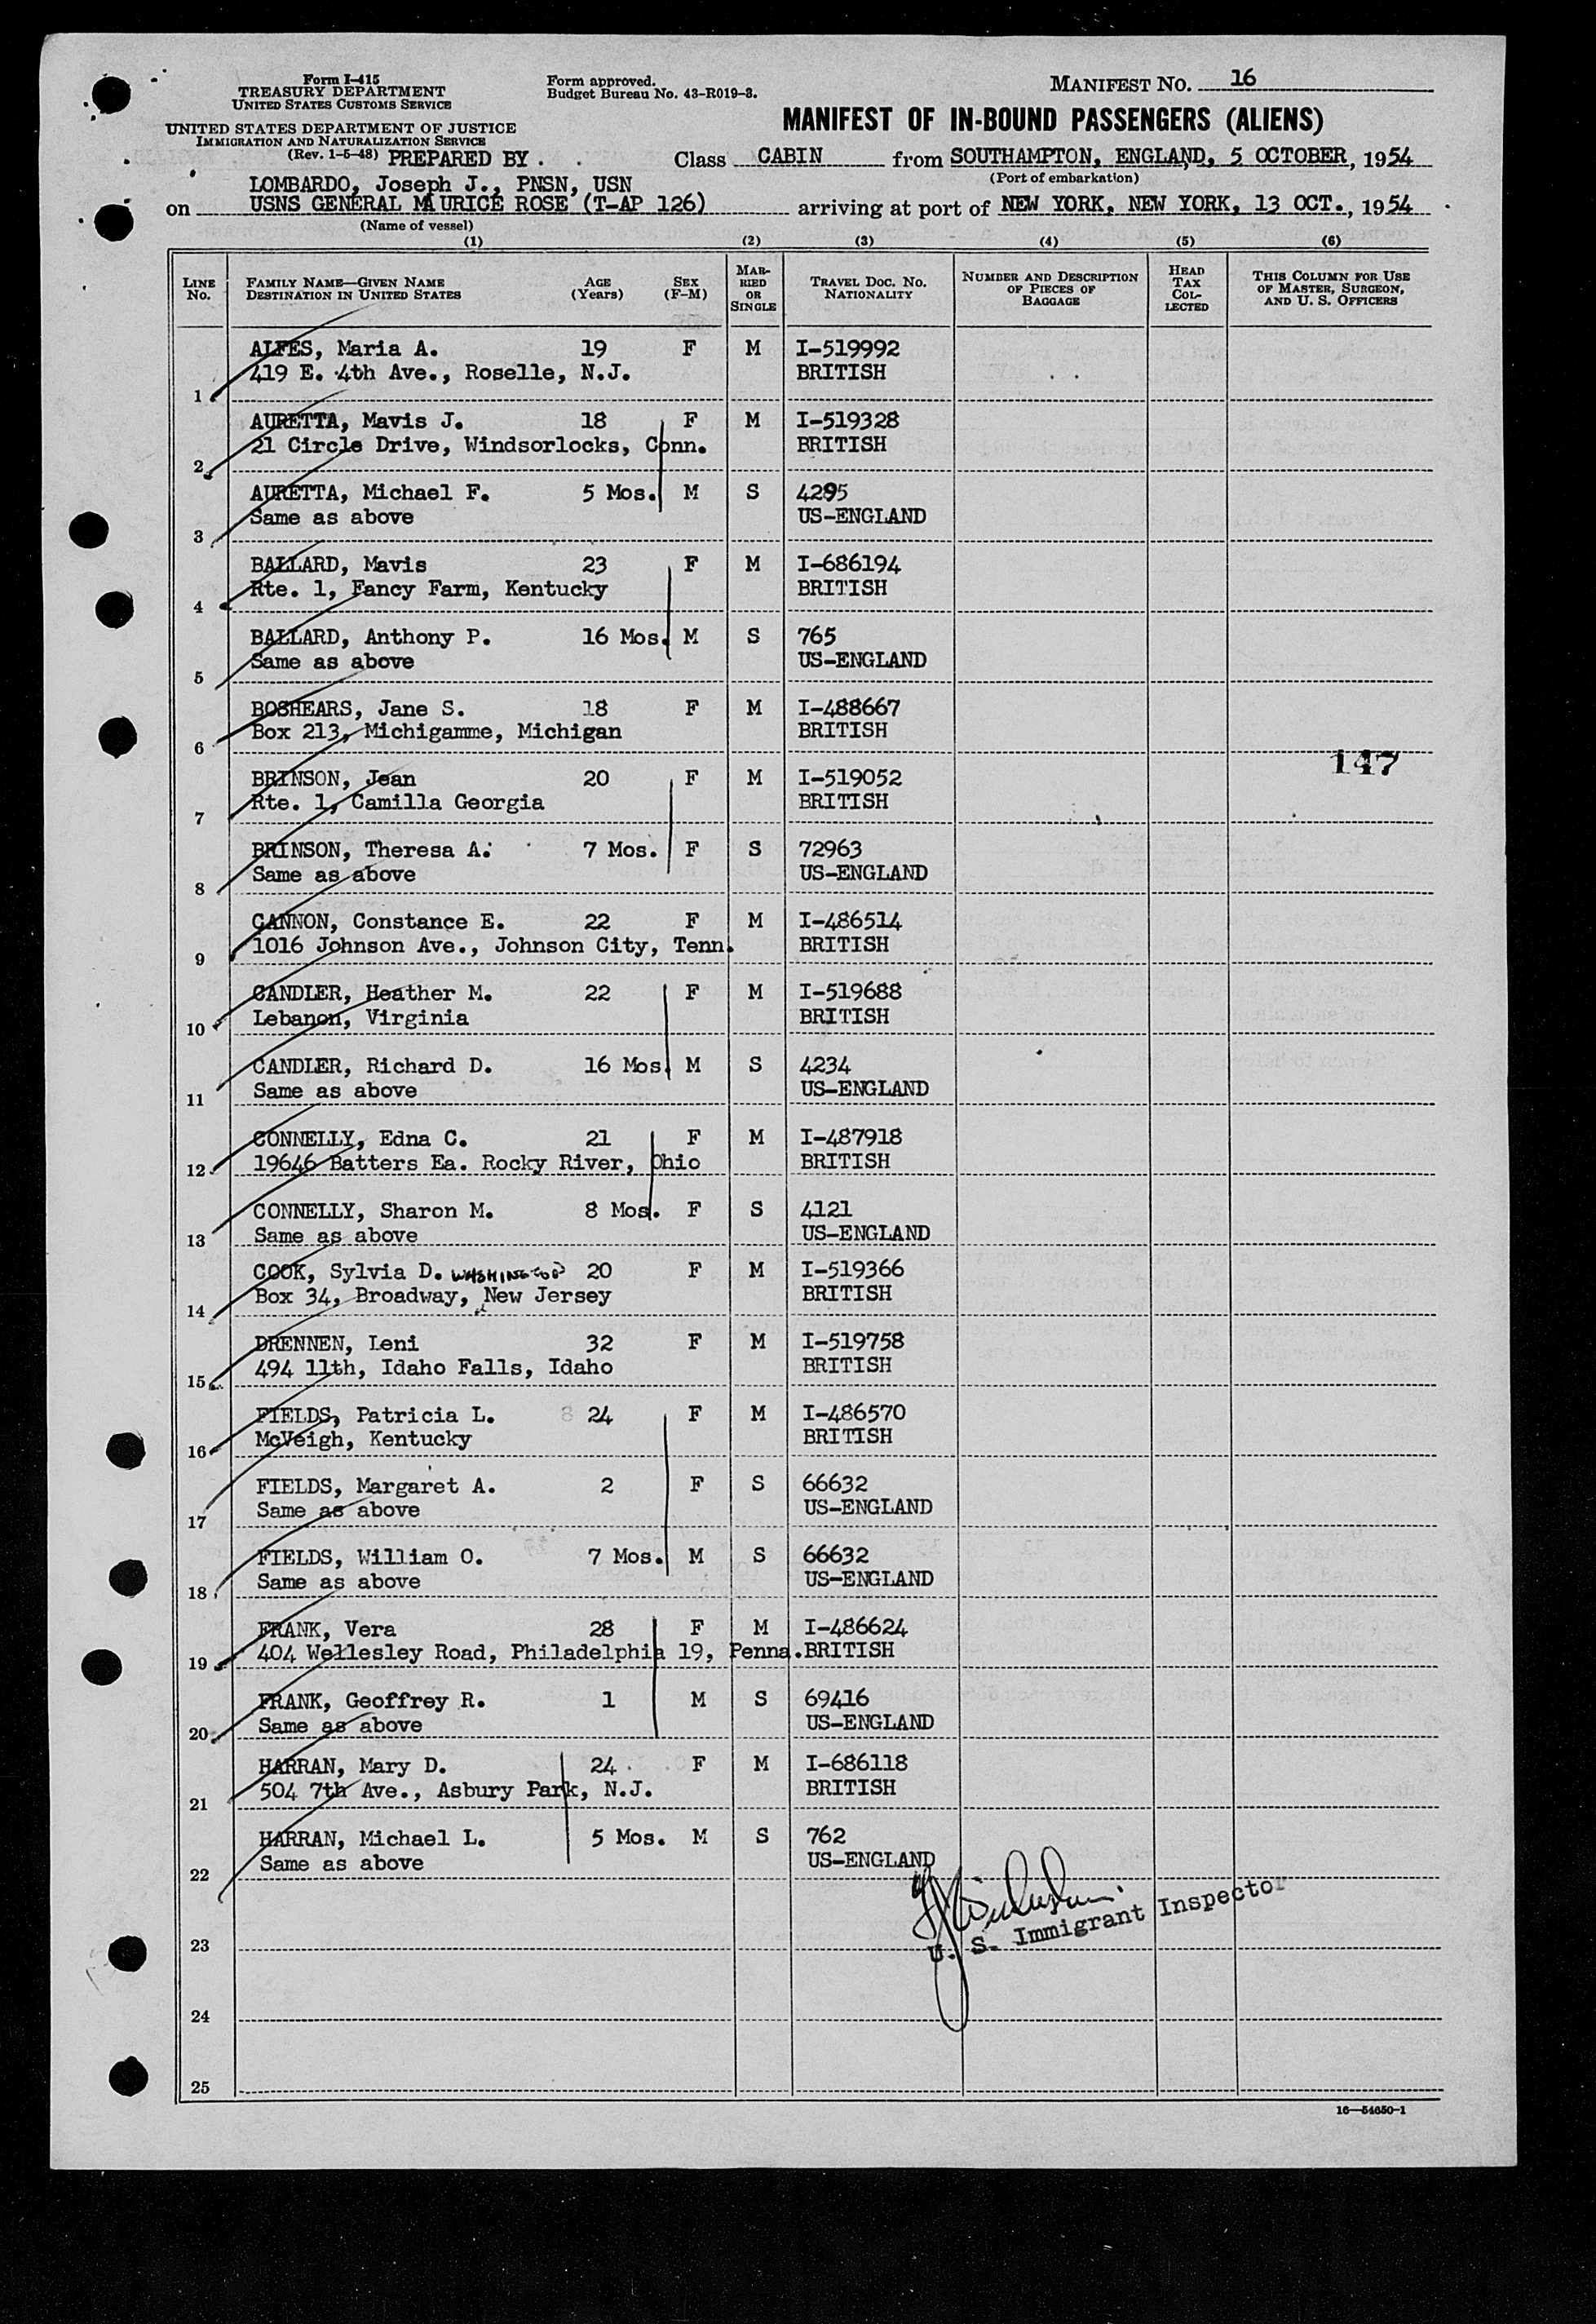 Form I-415
TREASURY DEPARTMENT
UNITED STATES CUSTOMS SERVICE
UNITED STATES DEPARTMENT OF JUSTICE
IMMIGRATION AND NATURALIZATION SERVICE
(Rev. 1-5-48) PREPARED BY
Form approved.
Budget Bureau No. 43-R019-3.
MANIFEST NO. 16
MANIFEST OF IN-BOUND PASSENGERS (ALIENS)
Class CABIN from SOUTHAMPTON, ENGLAND, 5 OCTOBER, 1954
(Port of embarkation)
LOMBARDO, Joseph J., PNSN, USN
on USNS GENERAL MAURICE ROSE (T-AP 126) arriving at port of NEW YORK, NEW YORK, 13 OCT., 1954
(Name of vessel)
(1) (2) (3) (4) (5) (6)
LINE No.
FAMILY NAME—GIVEN NAME
DESTINATION IN UNITED STATES
AGE (Years)
SEX (F-M)
MARRIED OR SINGLE
TRAVEL DOC. NO.
NATIONALITY
NUMBER AND DESCRIPTION
OF PIECES OF
BAGGAGE
HEAD TAX COLLECTED
THIS COLUMN FOR USE
OF MASTER, SURGEON,
AND U. S. OFFICERS
ALFES, Maria A. 19 F M I-519992
1 419 E. 4th Ave., Roselle, N.J. BRITISH
AURETTA, Mavis J. 18 F M I-519328
2 21 Circle Drive, Windsorlocks, Conn. BRITISH
AURETTA, Michael F. 5 Mos. M S 4295
3 Same as above US-ENGLAND
BALLARD, Mavis 23 F M I-686194
4 Rte. 1, Fancy Farm, Kentucky BRITISH
BALLARD, Anthony P. 16 Mos. M S 765
5 Same as above US-ENGLAND
BOSHEARS, Jane S. 18 F M I-488667
6 Box 213, Michigamme, Michigan BRITISH
147
BRINSON, Jean 20 F M I-519052
7 Rte. 1, Camilla Georgia BRITISH
BRINSON, Theresa A. 7 Mos. F S 72963
8 Same as above US-ENGLAND
CANNON, Constance E. 22 F M I-486514
9 1016 Johnson Ave., Johnson City, Tenn. BRITISH
CANDLER, Heather M. 22 F M I-519688
10 Lebanon, Virginia BRITISH
CANDLER, Richard D. 16 Mos. M S 4234
11 Same as above US-ENGLAND
CONNELLY, Edna C. 21 F M I-487918
12 19646 Batters Ea. Rocky River, Ohio BRITISH
CONNELLY, Sharon M. 8 Mos. F S 4121
13 Same as above US-ENGLAND
COOK, Sylvia D. WASHINGTON 20 F M I-519366
14 Box 34, Broadway, New Jersey BRITISH
DRENNEN, Leni 32 F M I-519758
15 494 11th, Idaho Falls, Idaho BRITISH
FIELDS, Patricia L. 24 F M I-486570
16 McVeigh, Kentucky BRITISH
FIELDS, Margaret A. 2 F S 66632
17 Same as above US-ENGLAND
FIELDS, William O. 7 Mos. M S 66632
18 Same as above US-ENGLAND
FRANK, Vera 28 F M I-486624
19 404 Wellesley Road, Philadelphia 19, Penna. BRITISH
FRANK, Geoffrey R. 1 M S 69416
20 Same as above US-ENGLAND
HARRAN, Mary D. 24 F M I-686118
21 504 7th Ave., Asbury Park, N.J. BRITISH
HARRAN, Michael L. 5 Mos. M S 762
22 Same as above US-ENGLAND
U. S. Immigrant Inspector
23
24
25
16—54650-1